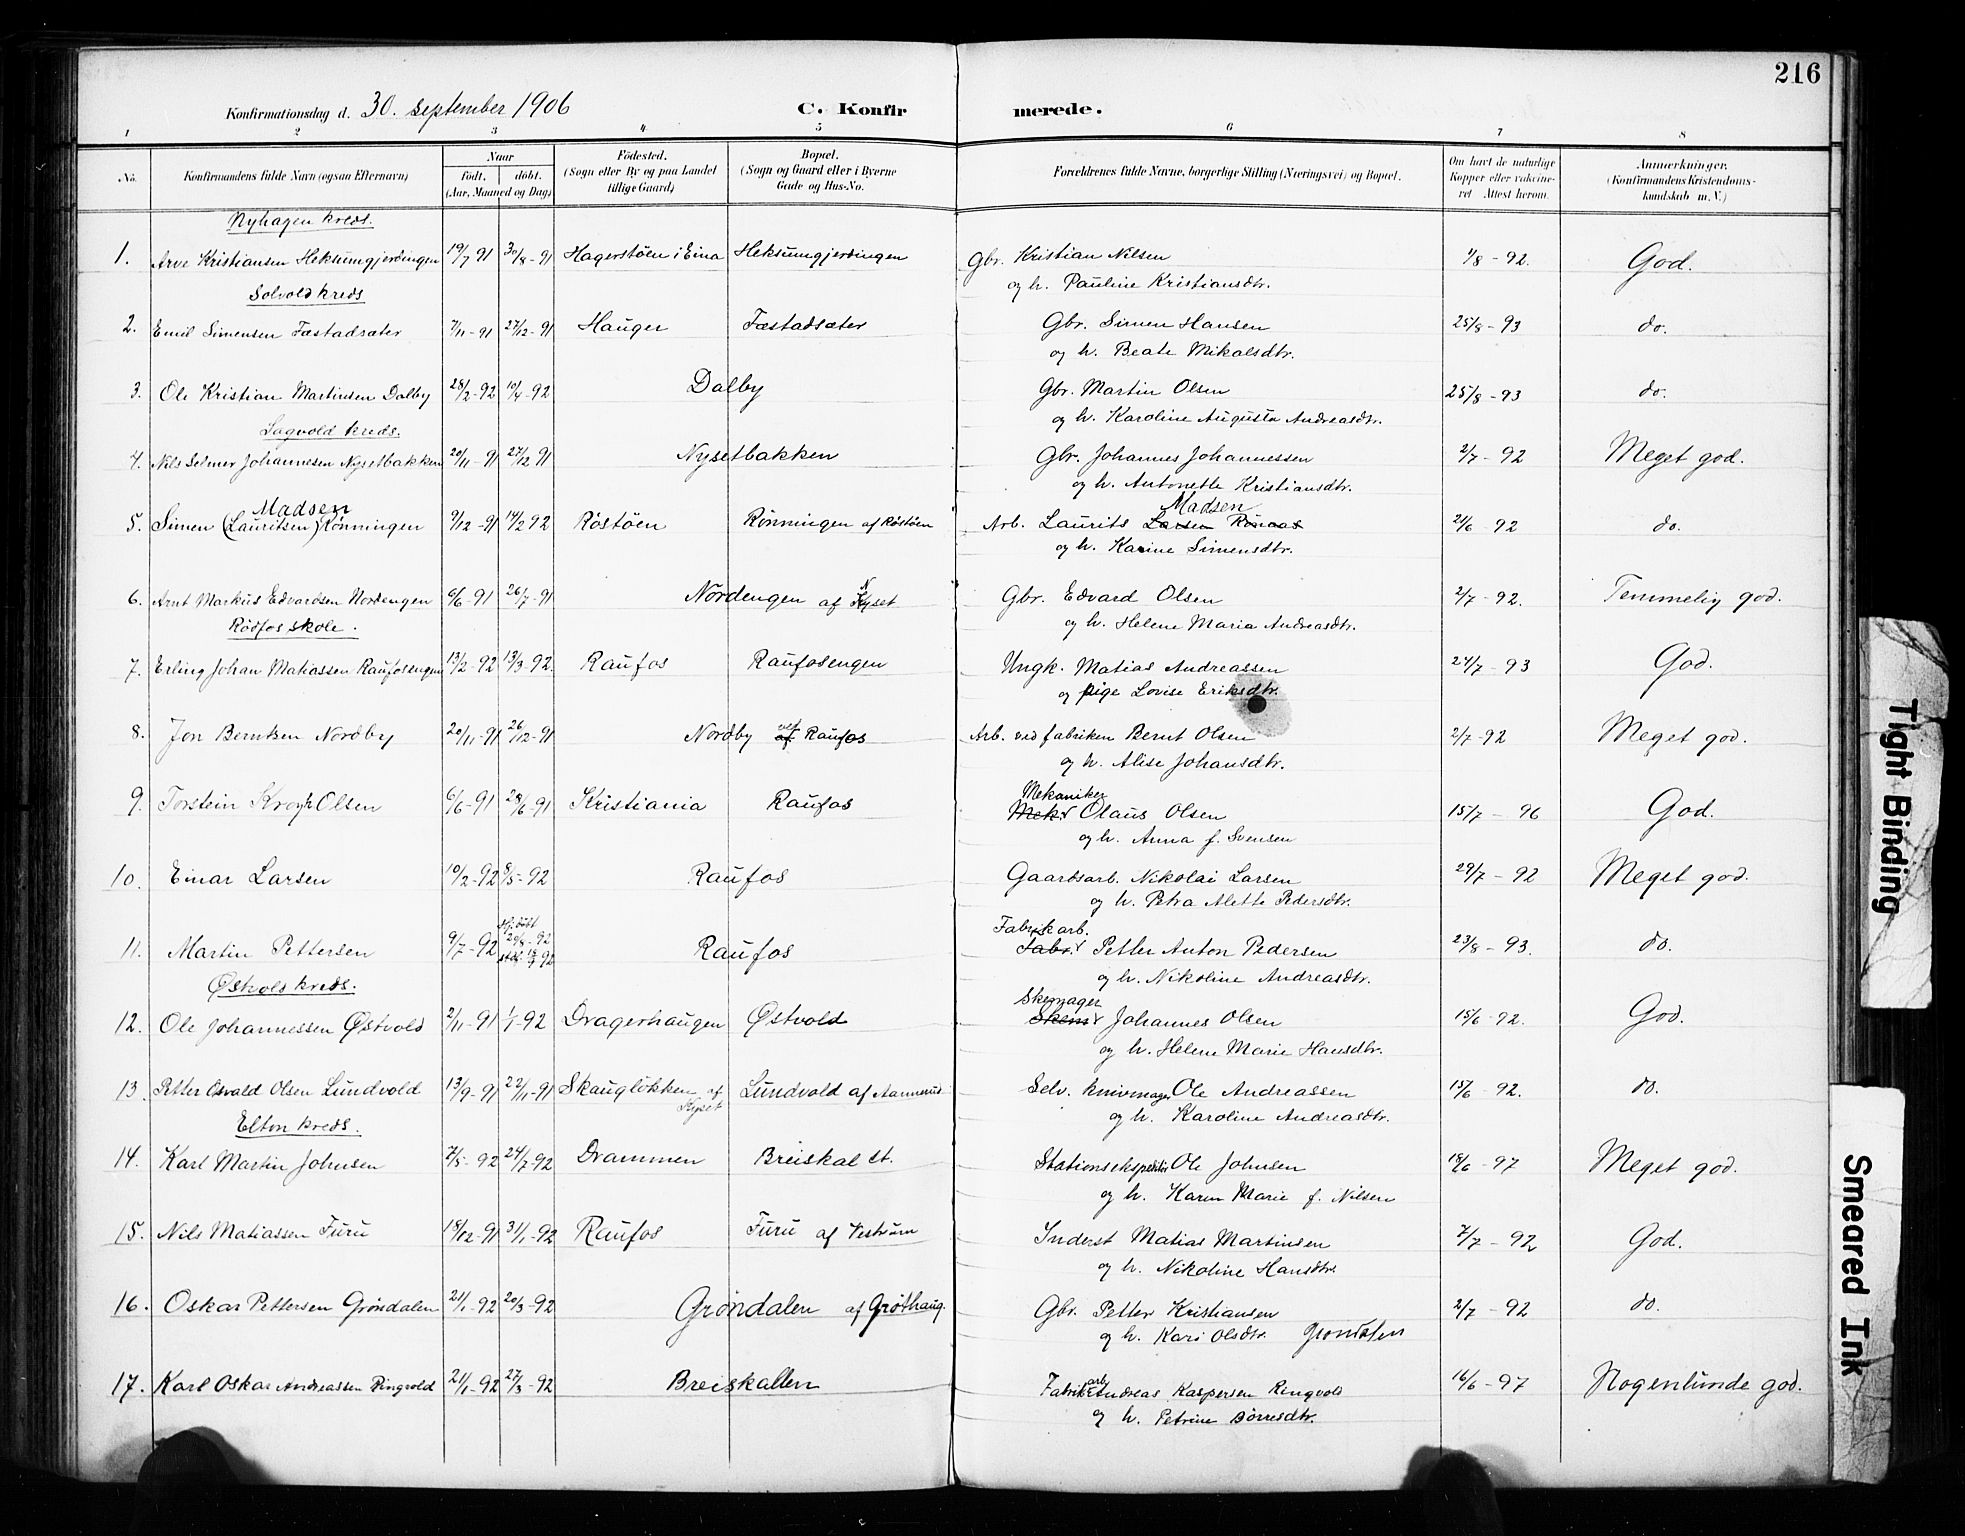 216
Konfirmationsdag d. 30. september 1906 C. Konfirmerede.
1 2 3 4 5 6 7 8
No. Konfirmandens fulde Navn (ogsaa Efternavn) Naar født. døbt. (Aar, Maaned og Dag) Fødested. (Sogn eller By og paa Landet tillige Gaard) Bopæl. (Sogn og Gaard eller i Byerne Gade og Hus-No. Forældrenes fulde Navne, borgerlige Stilling (Næringsvei) og Bopæl. Om havt de naturlige Kopper eller vaccineret Attest herom. Anmærkninger. (Konfirmandens Kristendomskundskab m. V.)
Nyhagen kreds.
1. Arve Kristiansen Heksumgjerdingen 19/7 91 30/8-91 Hagerstøen i Eina Heksumgjerdingen Gbr. Kristian Nilsen 1/8-92. God.
og h. Pauline Kristiansdtr.
Solvold kreds
2. Emil Simensen Fæstadsæter 7/11-91 27/12-91 Hauger Fæstadsæter Gbr. Simen Hansen 25/8-93 do.
og h. Beate Mikalsdtr.
3. Ole Kristian Martinsen Dalby 28/2-92 10/4-92 Dalby Gbr. Martin Olsen 25/8-93 do.
og h. Karoline Augusta Andreasdtr.
Sagvold kreds.
4. Nils Selmer Johannesen Nysetbakken 20/11-91 27/12 91 Nysetbakken Gbr. Johannes Johannessen 2/7-92 Meget god.
og h. Antonette Kristiansdtr.
Madsen Madsen
5. Simen (Lauritsen) Rønningen 9/12-91 14/2 92 Røstøen Rønningen af Røstøen Arb. Laurits Larsen 21/6-92 do.
og h. Karine Simensdtr.
6. Arnt Markus Edvardsen Nordengen 6/6-91 26/7-91 Nordengen af Nyset Gbr. Edvard Olsen 2/7-92. Temmelig god.
og h. Helene Maria Andreasdtr.
Rødfos skole.
7. Erling Johan Matiassen Raufosengen 13/2-92 13/3-92. Raufos Raufosengen Ungk. Matias Andreassen 24/7-93 God.
og pige Lovise Eriksdtr.
8. Jon Berntsen Nordby 20/11-91 26/12-91 Nordby ved af Raufos Arb. ved fabriken Bernt Olsen 2/7-92 Meget god.
og h. Alise Johansdtr.
Mekaniker
9. Torstein Krogh Olsen 6/6-91 28/6-91 Kristiania Raufos Mek. Olaus Olsen 15/7-96 God.
og h. Anna f. Svensen
10. Einar Larsen 10/2-92 8/5-92 Raufos Gaardsarb. Nikolai Larsen 29/7-92 Meget god.
og h. Petra Alette Pedersdtr.
Hj. døbt Fabrikarb.
11. Martin Pettersen 9/7-92 Raufos Fabr. Petter Anton Pedersen 23/8-93. do.
og h. Nikoline Andreasdtr.
Østvold kreds. Skomager
12. Ole Johannessen Østvold 2/11-91 1/1-92 Dragerhaugen Østvold Johannes Olsen 15/6-92. God.
og h. Helene Marie Hansdtr.
13. Petter Osvald Olsen Lundvold 13/9-91 22/11-91 Skaugløkken af Lundvold af Aannerud Selv. knivmager Ole Andreassen 15/6-92. do.
og h. Karoline Andreasdtr.
Elton kreds.
14. Karl Martin Johnsen 7/5-92 24/7-92 Drammen Breiskal st. Stationsekspeditør Ole Johnsen 18/6-97 Meget god.
og h. Karen Marie f. Nilsen
15. Nils Matiassen Furu 18/12-91 31/1-92 Raufos Furu af Vestrum Inderst Matias Martinsen 7/7-92 God.
og h. Nikoline Hansdtr.
16. Oskar Pettersen Grøndalen 21/1-92 20/3-92 Grøndalen af Grøthaug. Gbr. Petter Kristiansen 2/7-92 do.
og h. Kari Olsdtr. Grøndalen
17. Karl Oskar Andreassen Ringvold 21/1-92 27/3-92 Breiskallen Fabrikarb. Andreas Kaspersen Ringvold 16/6-97 Nogenlunde god.
og h. Petrine Børresdtr.
Tight Binding
Smeared Ink